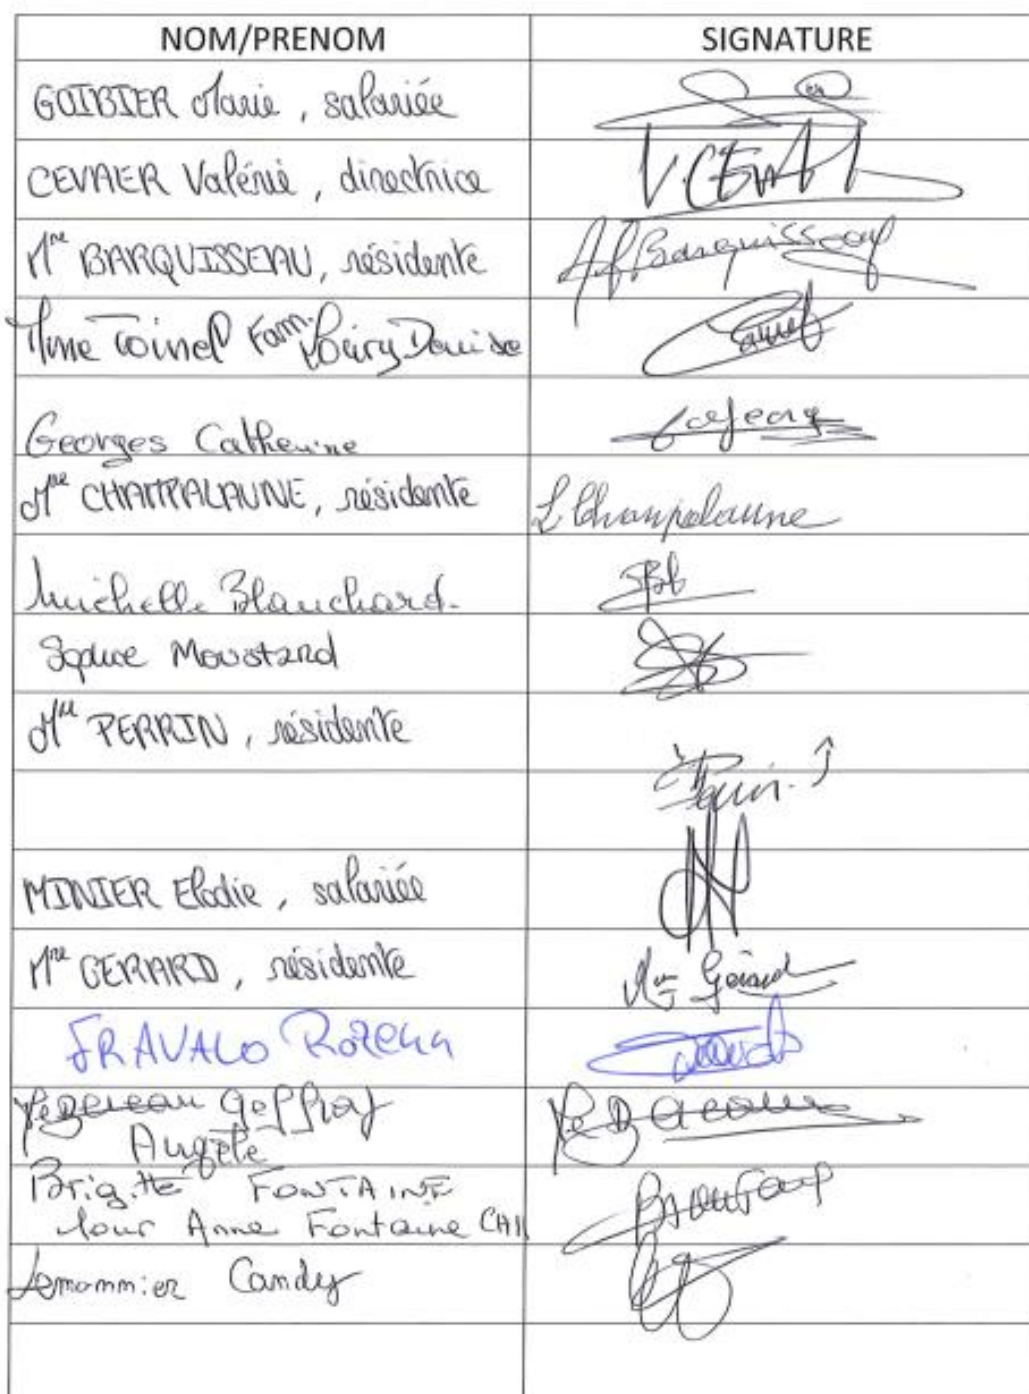 NOM/PRENOM SIGNATURE
GOIBIER Marie, salariée
CEVAER Valérie, directrice V. CEVAER
Mme BARQUISSEAU, résidente Barquisseau
Mme Toinel Fam. Denise
Georges Catherine
Mme CHAMPALAUNE, résidente L Champalaune
Michelle Blanchard.
Sophie Moustard
Mme PERRIN, résidente
Perrin. ↑
MINIER Elodie, salariée
Mme GERARD, résidente Mme Gérard
FRAVALO Rozenn
Geffray
Angèle
Brigitte FONTAINE
Pour Anne Fontaine
Lemonnier Candy